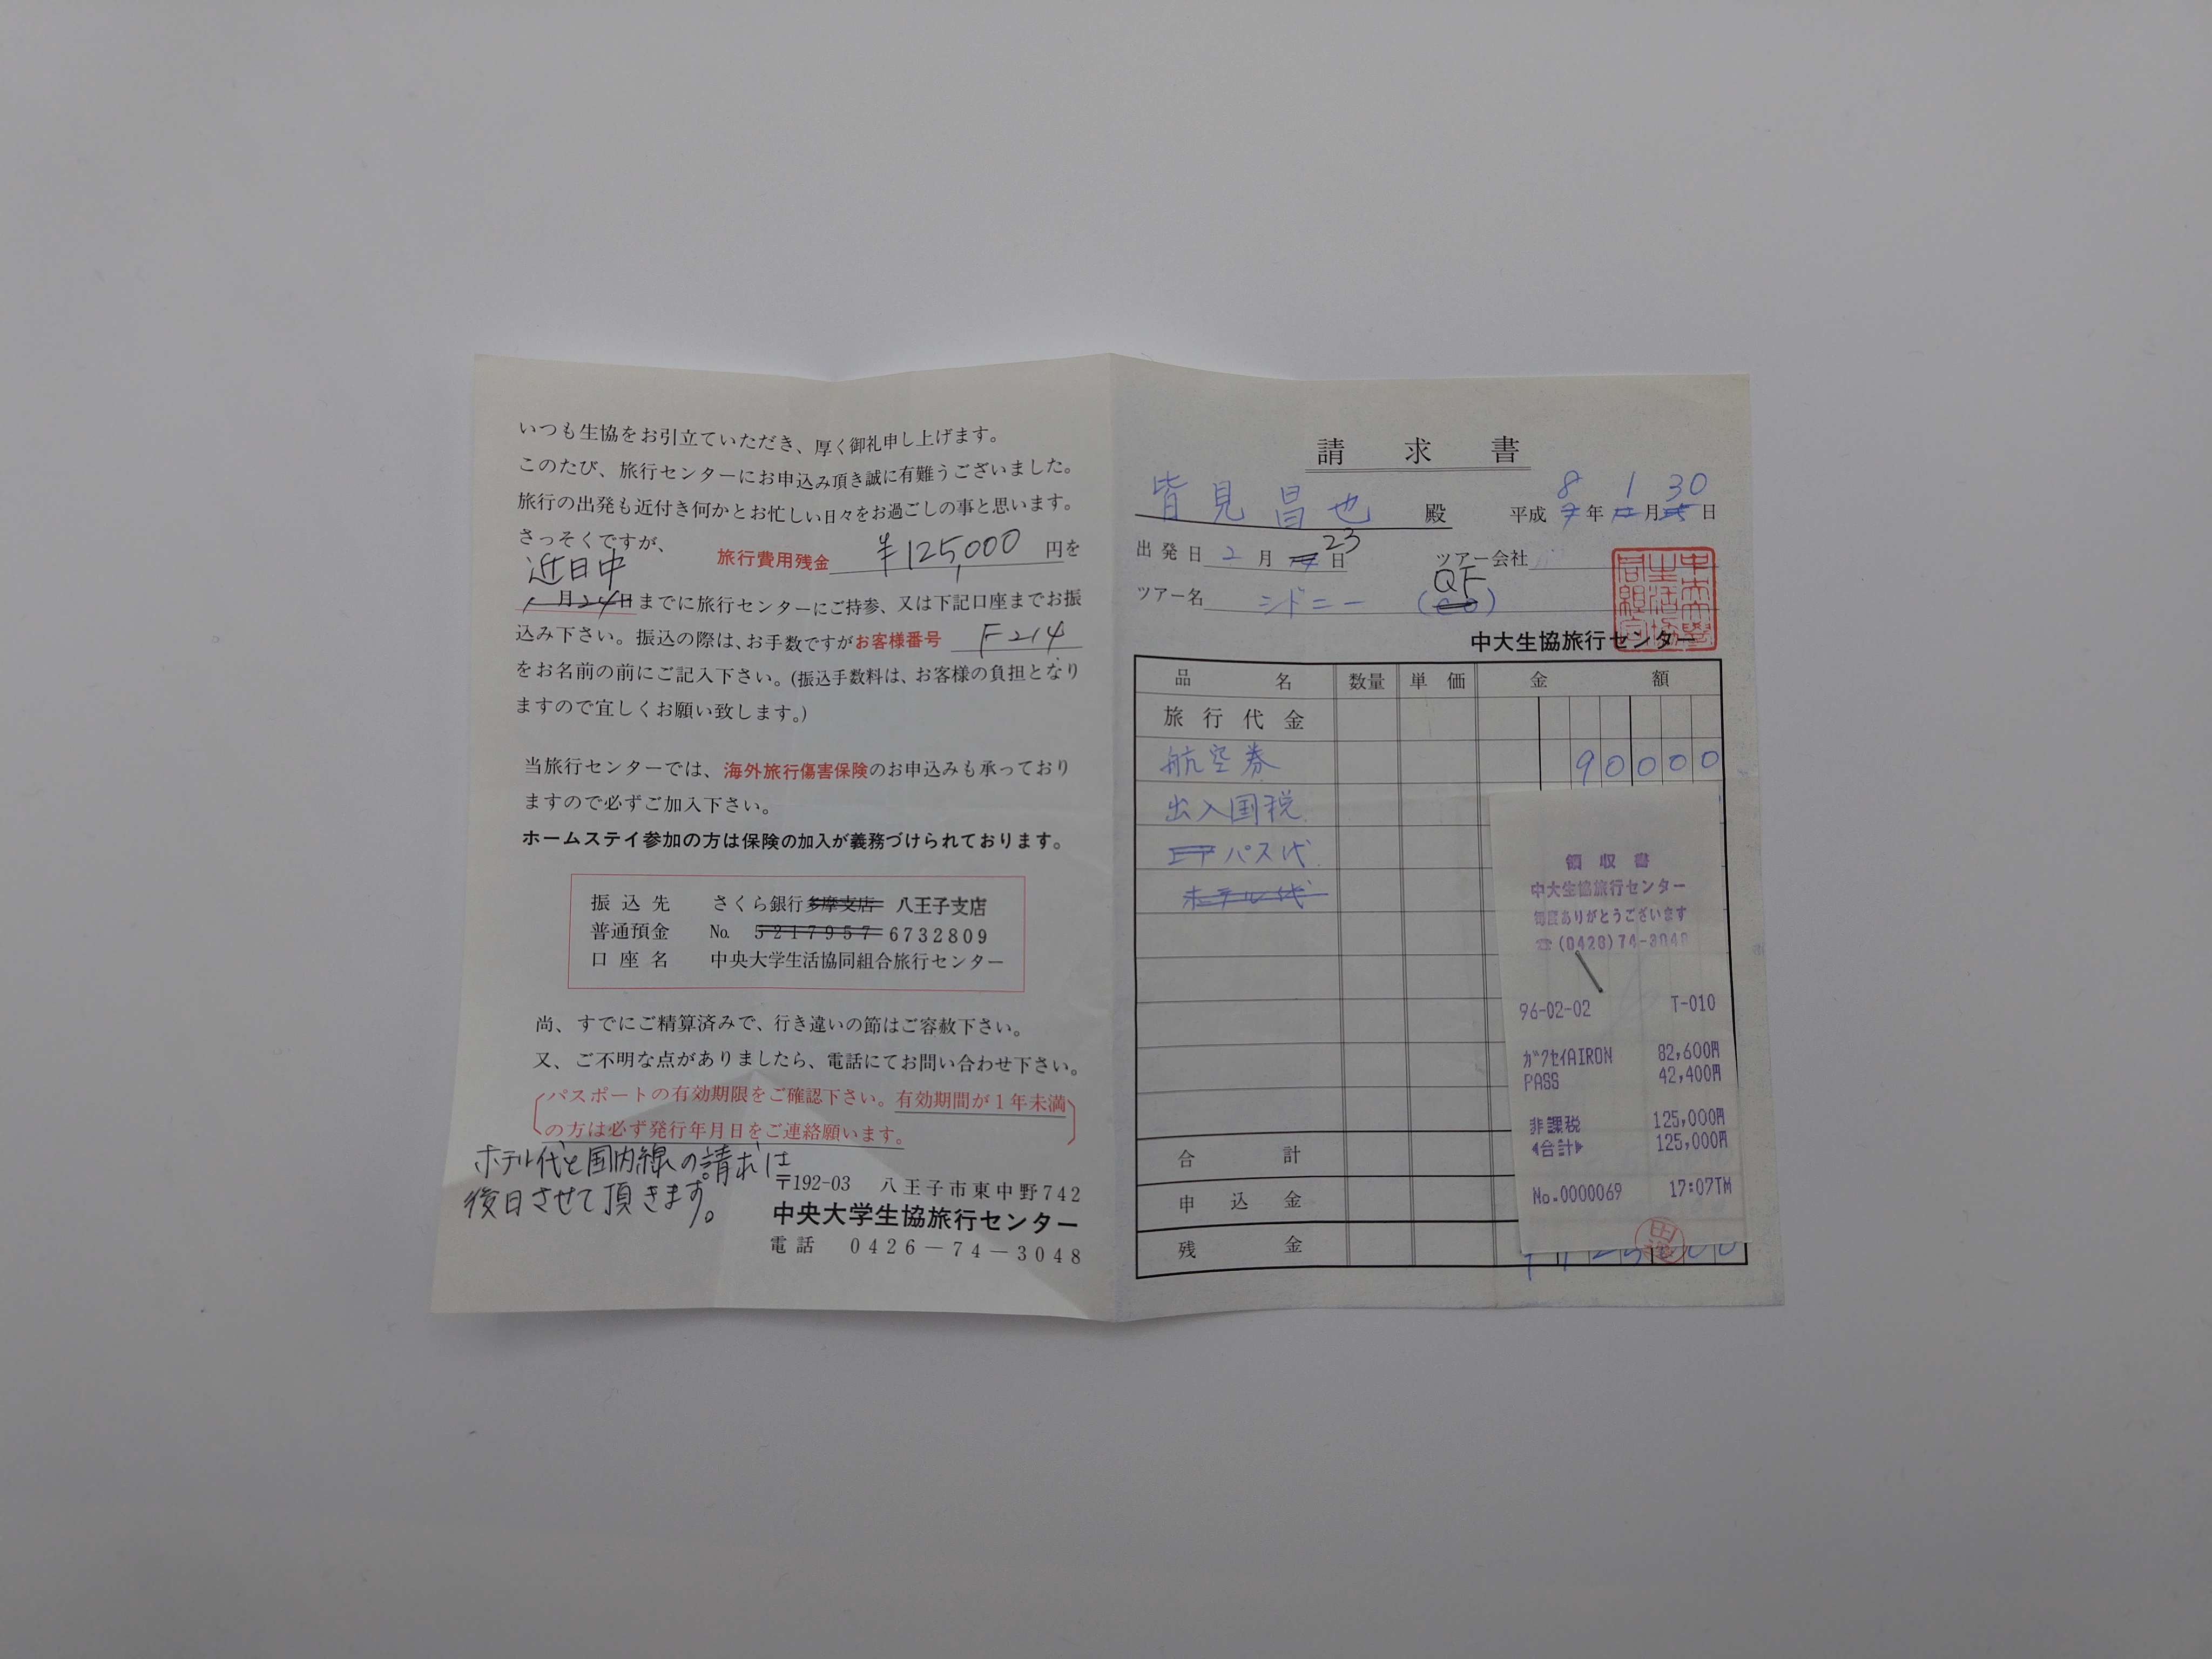 いつも生協をお引立ていただき、厚く御礼申し上げます。
このたび、旅行センターにお申込み頂き誠に有難うございました。
旅行の出発も近付き何かとお忙しい日々をお過ごしの事と思います。
さっそくですが、 旅行費用残金 ¥125,000 円を
近日中
月24日までに旅行センターにご持参、又は下記口座までお振
込み下さい。振込の際は、お手数ですがお客様番号 F214
をお名前の前にご記入下さい。(振込手数料は、お客様の負担となり
ますので宜しくお願い致します。)
当旅行センターでは、海外旅行傷害保険のお申込みも承っており
ますので必ずご加入下さい。
ホームステイ参加の方は保険の加入が義務づけられております。
振込先 さくら銀行多摩支店 八王子支店
普通預金 No. 5217957 6732809
口座名 中央大学生活協同組合旅行センター
尚、すでにご精算済みで、行き違いの節はご容赦下さい。
又、ご不明な点がありましたら、電話にてお問い合わせ下さい。
パスポートの有効期限をご確認下さい。有効期間が1年未満
の方は必ず発行年月日をご連絡願います。
ホテル代と国内線の請求は
後日させて頂きます。
〒192-03 八王子市東中野742
中央大学生協旅行センター
電話 0426-74-3048
請求書
皆見昌也 殿 平成 8 年 1 月 30 日
出発日 2 月 23 日 ツアー会社
ツアー名 シドニー (QF)
中大生協旅行センター
品名 数量 単価 金額
旅行代金
航空券 90000
出入国税
パス代
ホテル代
合計
申込金
残金
領収書
中大生協旅行センター
毎度ありがとうございます
☎(0426)74-3048
96-02-02 T-010
ガクセイAIRON 82,600円
PASS 42,400円
非課税 125,000円
◀合計▶ 125,000円
No.0000069 17:07TM